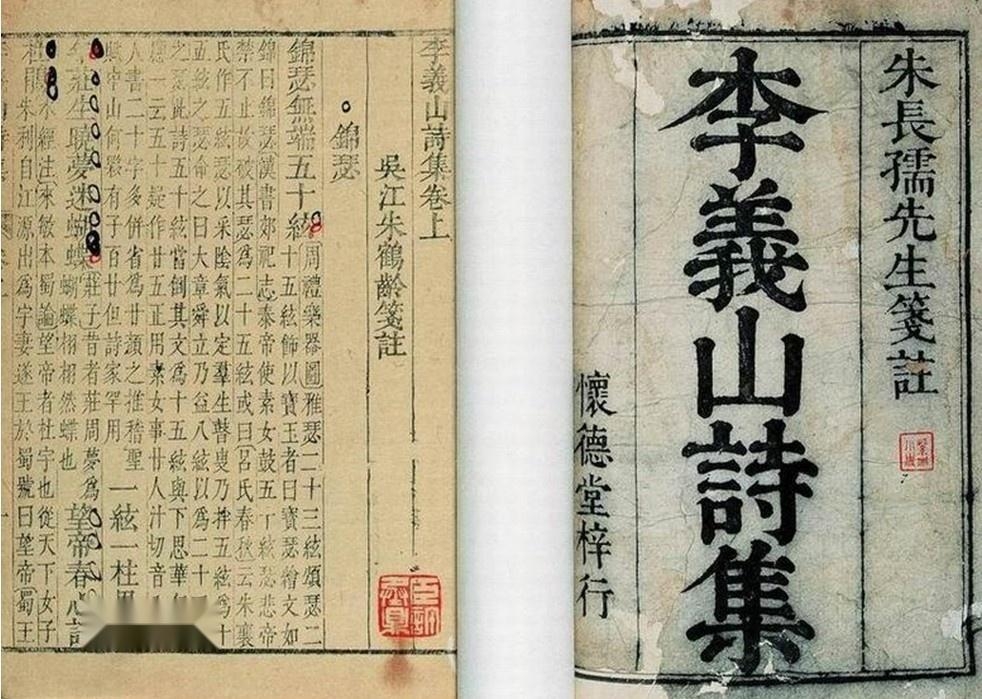 朱長孺先生箋註
李義山詩集
懷德堂梓行
李義山詩集卷上
吳江朱鶴齡箋註
錦瑟
錦瑟無端五十絃
周禮樂器圖雅瑟二十三絃頌瑟二
十五絃飾以寶玉者曰寶瑟繪文如
錦曰錦瑟漢書郊祀志泰帝使素女鼓五十絃瑟悲帝
禁不止故破其瑟爲二十五絃或曰呂氏春秋云朱襄
氏作五絃瑟以采陰氣以定羣生瞽叟乃拌五絃爲十
五絃之瑟命之曰大章舜立乃益八絃以爲二十
之瑟此詩五十絃當倒其文爲十五絃與下思華
應一云五十疑作廿五正用素女事廿人汁切音
人書二十字多併省爲廿顏之推稽聖
賦中山何夥有子百廿但詩家罕用
一絃一柱思
莊生曉夢迷蝴蝶
莊子昔者莊周夢爲
蝴蝶栩栩然蝶也
望帝春心託
杜鵑
水經注來敏本蜀論望帝者杜宇也從天下女子
朱利自江源出爲宇妻遂王於蜀號曰望帝蜀王